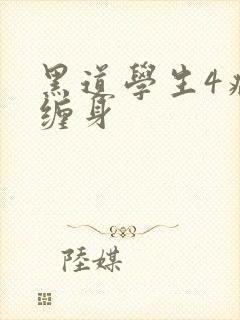 黑道學生4
缠身
陸媒